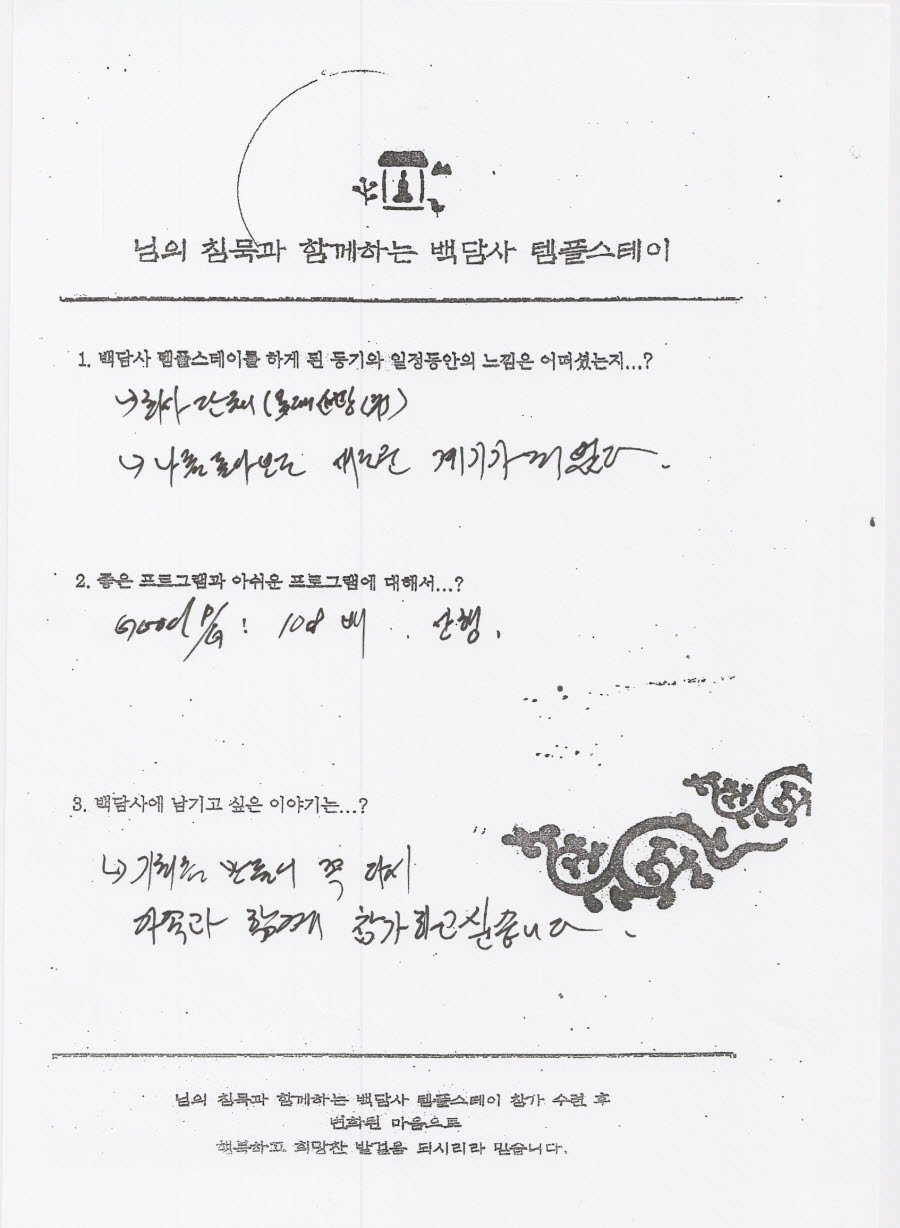 님의 침묵과 함께하는 백담사 템플스테이
1. 백담사 템플스테이를 하게 된 동기와 일정동안의 느낌은 어떠셨는지...?
↳ 회사 단체
↳ 나를 돌아보는 새로운 계기가 되었다.
2. 좋은 프로그램과 아쉬운 프로그램에 대해서...?
Good P/G : 108 배 . 산행.
3. 백담사에 남기고 싶은 이야기는...?
↳ 기회를 만들어 꼭 다시
가족과 함께 참가하고 싶습니다.
님의 침묵과 함께하는 백담사 템플스테이 참가 수련 후
변화된 마음으로
행복하고 희망찬 발걸음 되시리라 믿습니다.